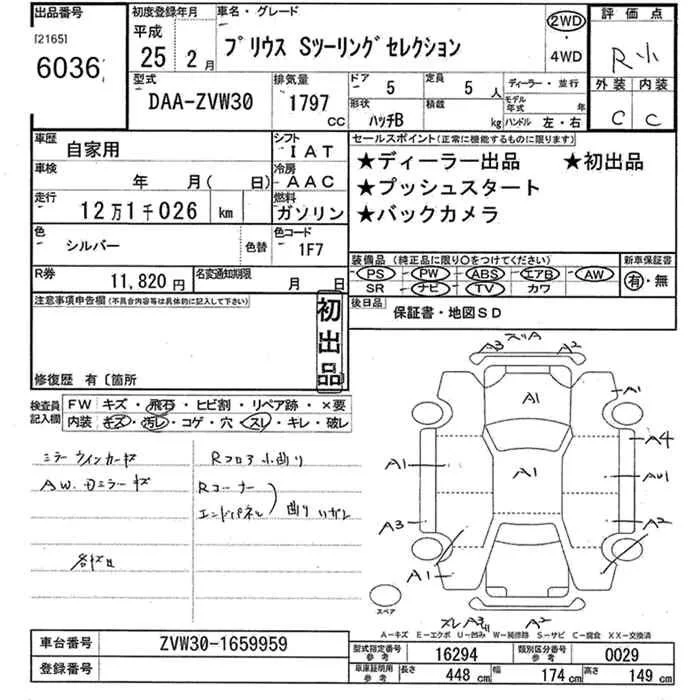 出品番号
[2165]
6036
初度登録年月
平成
25年 2月
車名・グレード
プリウス Sツーリングセレクション
2WD
・
4WD
評価点
R小
外装 内装
C C
型式
DAA-ZVW30
排気量
1797 CC
ドア
5
定員
5 人
形状
ハッチB
積載
kg
ディーラー・並行
モデル年式 年
ハンドル 左・右
車歴
自家用
シフト
IAT
車検
年 月( 日)
冷房
AAC
走行
12万1千026 km
燃料
ガソリン
色
シルバー
色替
色コード
1F7
R券
11,820円
名変通知期限
月 日
セールスポイント(正常に機能するものに限ります)
★ディーラー出品 ★初出品
★プッシュスタート
★バックカメラ
装備品 (純正品に限り〇をつけてください)
PS PW ABS エアB AW
SR ナビ TV カワ
新車保証書
有・無
後日品
保証書・地図SD
注意事項申告欄(不具合内容等は具体的に記入して下さい)
初出品
修復歴 有〔箇所
検査員記入欄
FW キズ・飛石・ヒビ割・リペア跡・×要
内装 キズ・汚レ・コゲ・穴・スレ・キレ・破レ
ミラーウインカーキズ
AW.
各キズ凹
Rフロア小曲り
Rコーナー
エンドパネル
曲り
スリA
A3 A2
A1
A1
A4
A1
A1
AU1
A3
A2
A1
A2
スペア
A-キズ E-エクボ U-凹み W-補修跡 S-サビ C-腐食 XX-交換済
車台番号
ZVW30-1659959
登録番号
型式指定番号 参考
16294
類別区分番号 参考
0029
車庫証明用 参考
長さ 448 cm 幅 174 cm 高さ 149 cm